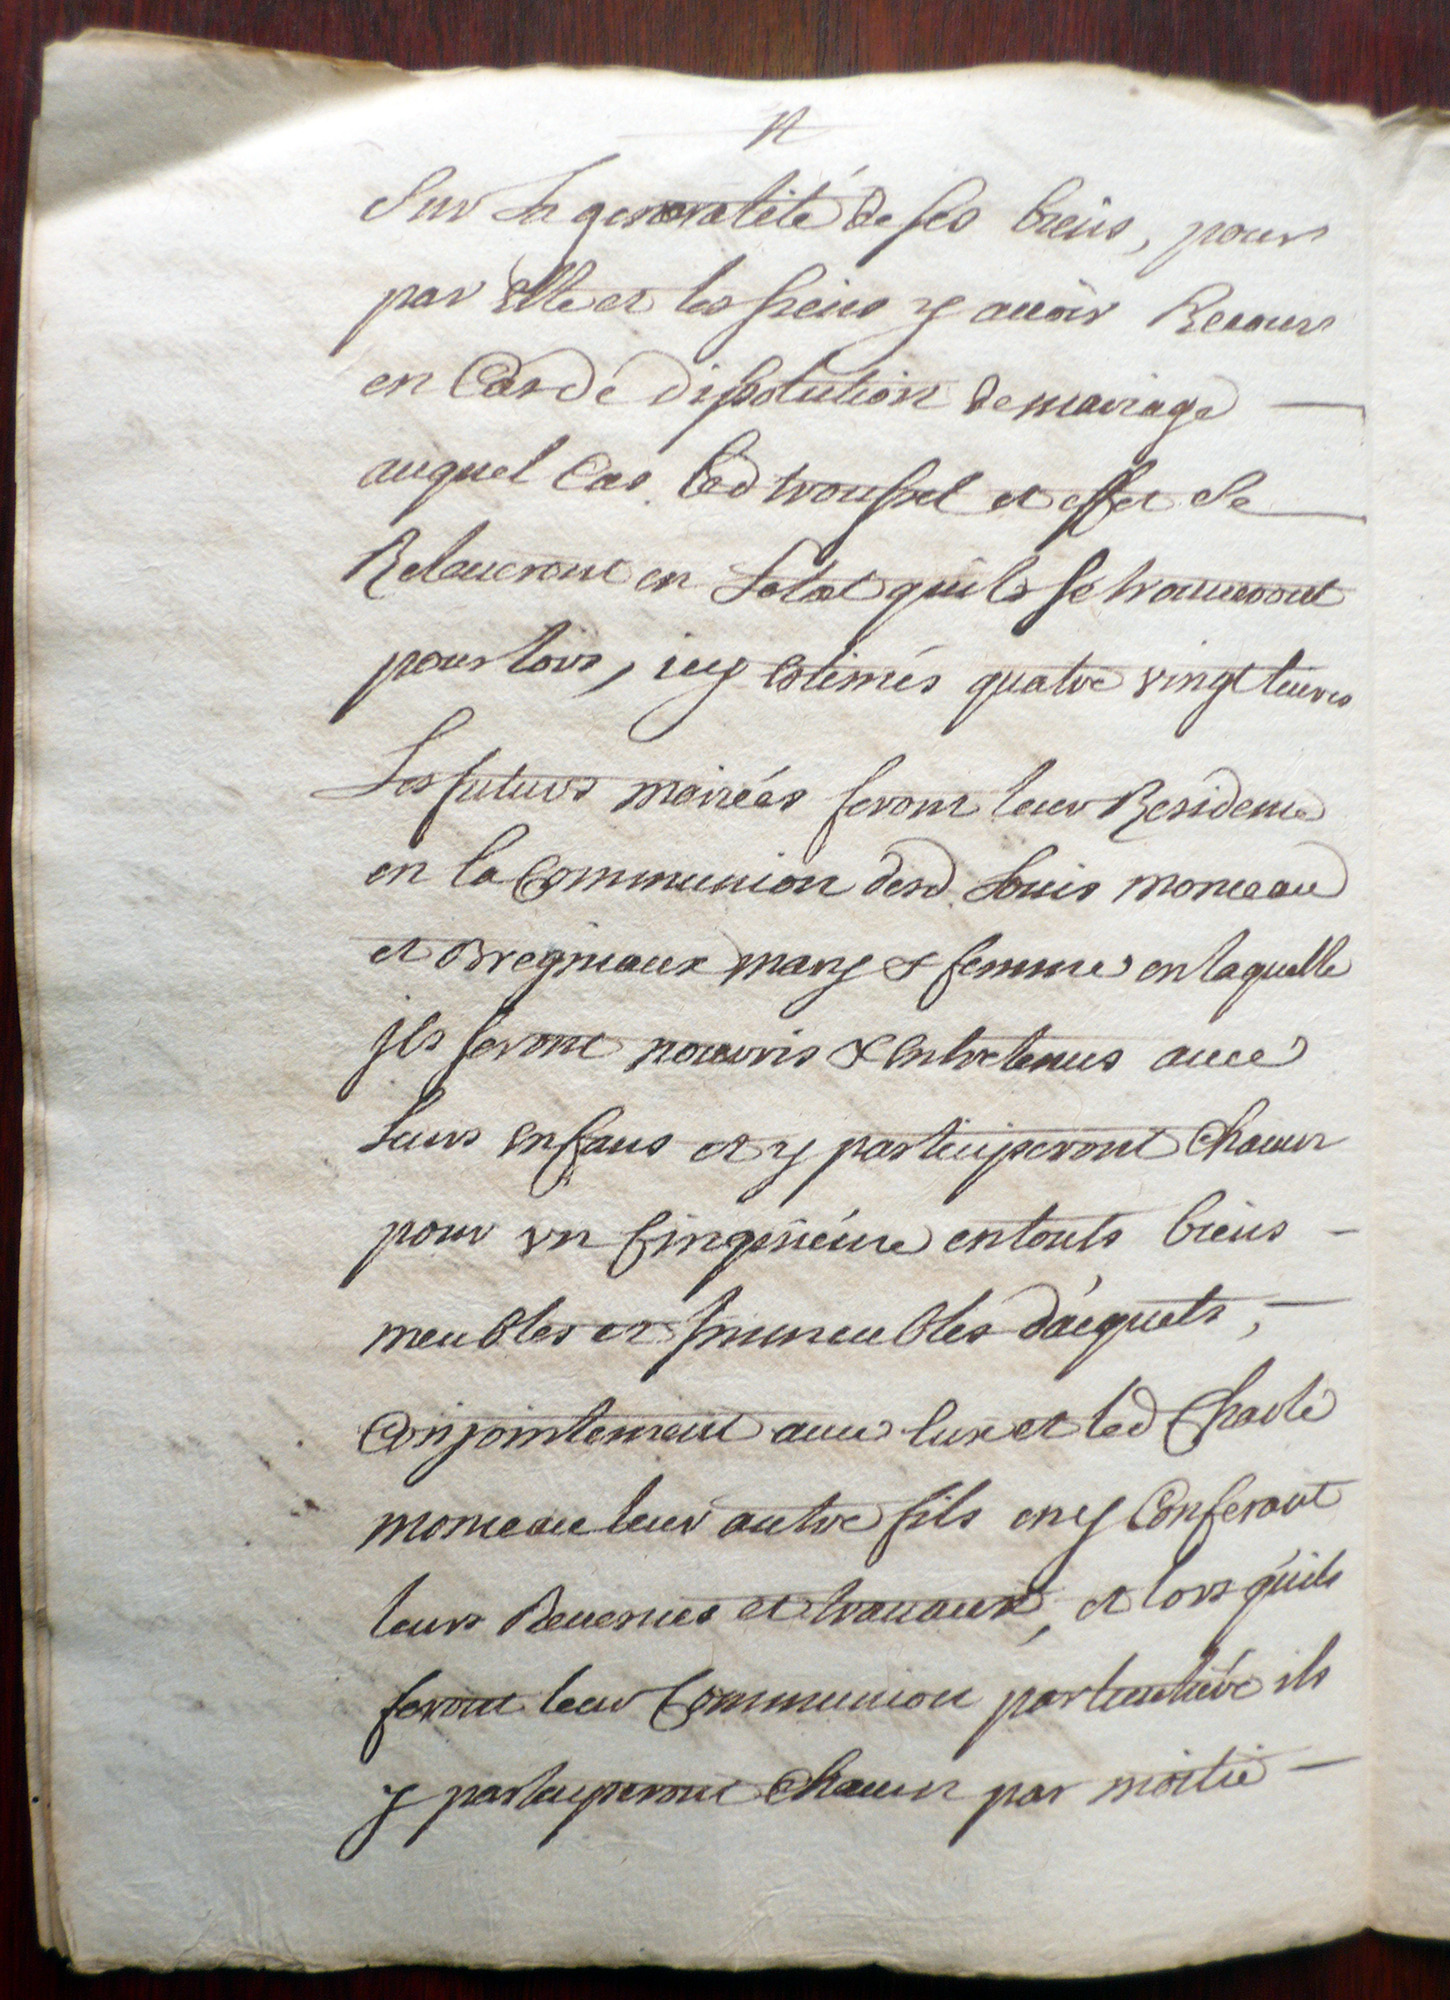 Sur La generalité de ses biens, pour
par Elle et les siens y avoir Recours
en Cas de dissolution de mariage
auquel Cas led troussel et effet Se
Releveront en Letat quils se trouveront
pour lors, icy estimés quatre vingt livres
Les futurs mariées feront leur Residence
en la Communion desd. Louis monceau
et mary & femme en laquelle
jls seront nourris & Entretenus avec
Leurs enfans et y participeront Chacun
pour vn Cinquieme en touts biens
meubles et Immeubles d'acquets,
Conjointement avec Eux et led Charle
monceau leur autre fils en y Conferant
leurs Revenues et travaux, et lors quils
feront leur Communion particuliere ils
y participeront Chacun par moitié